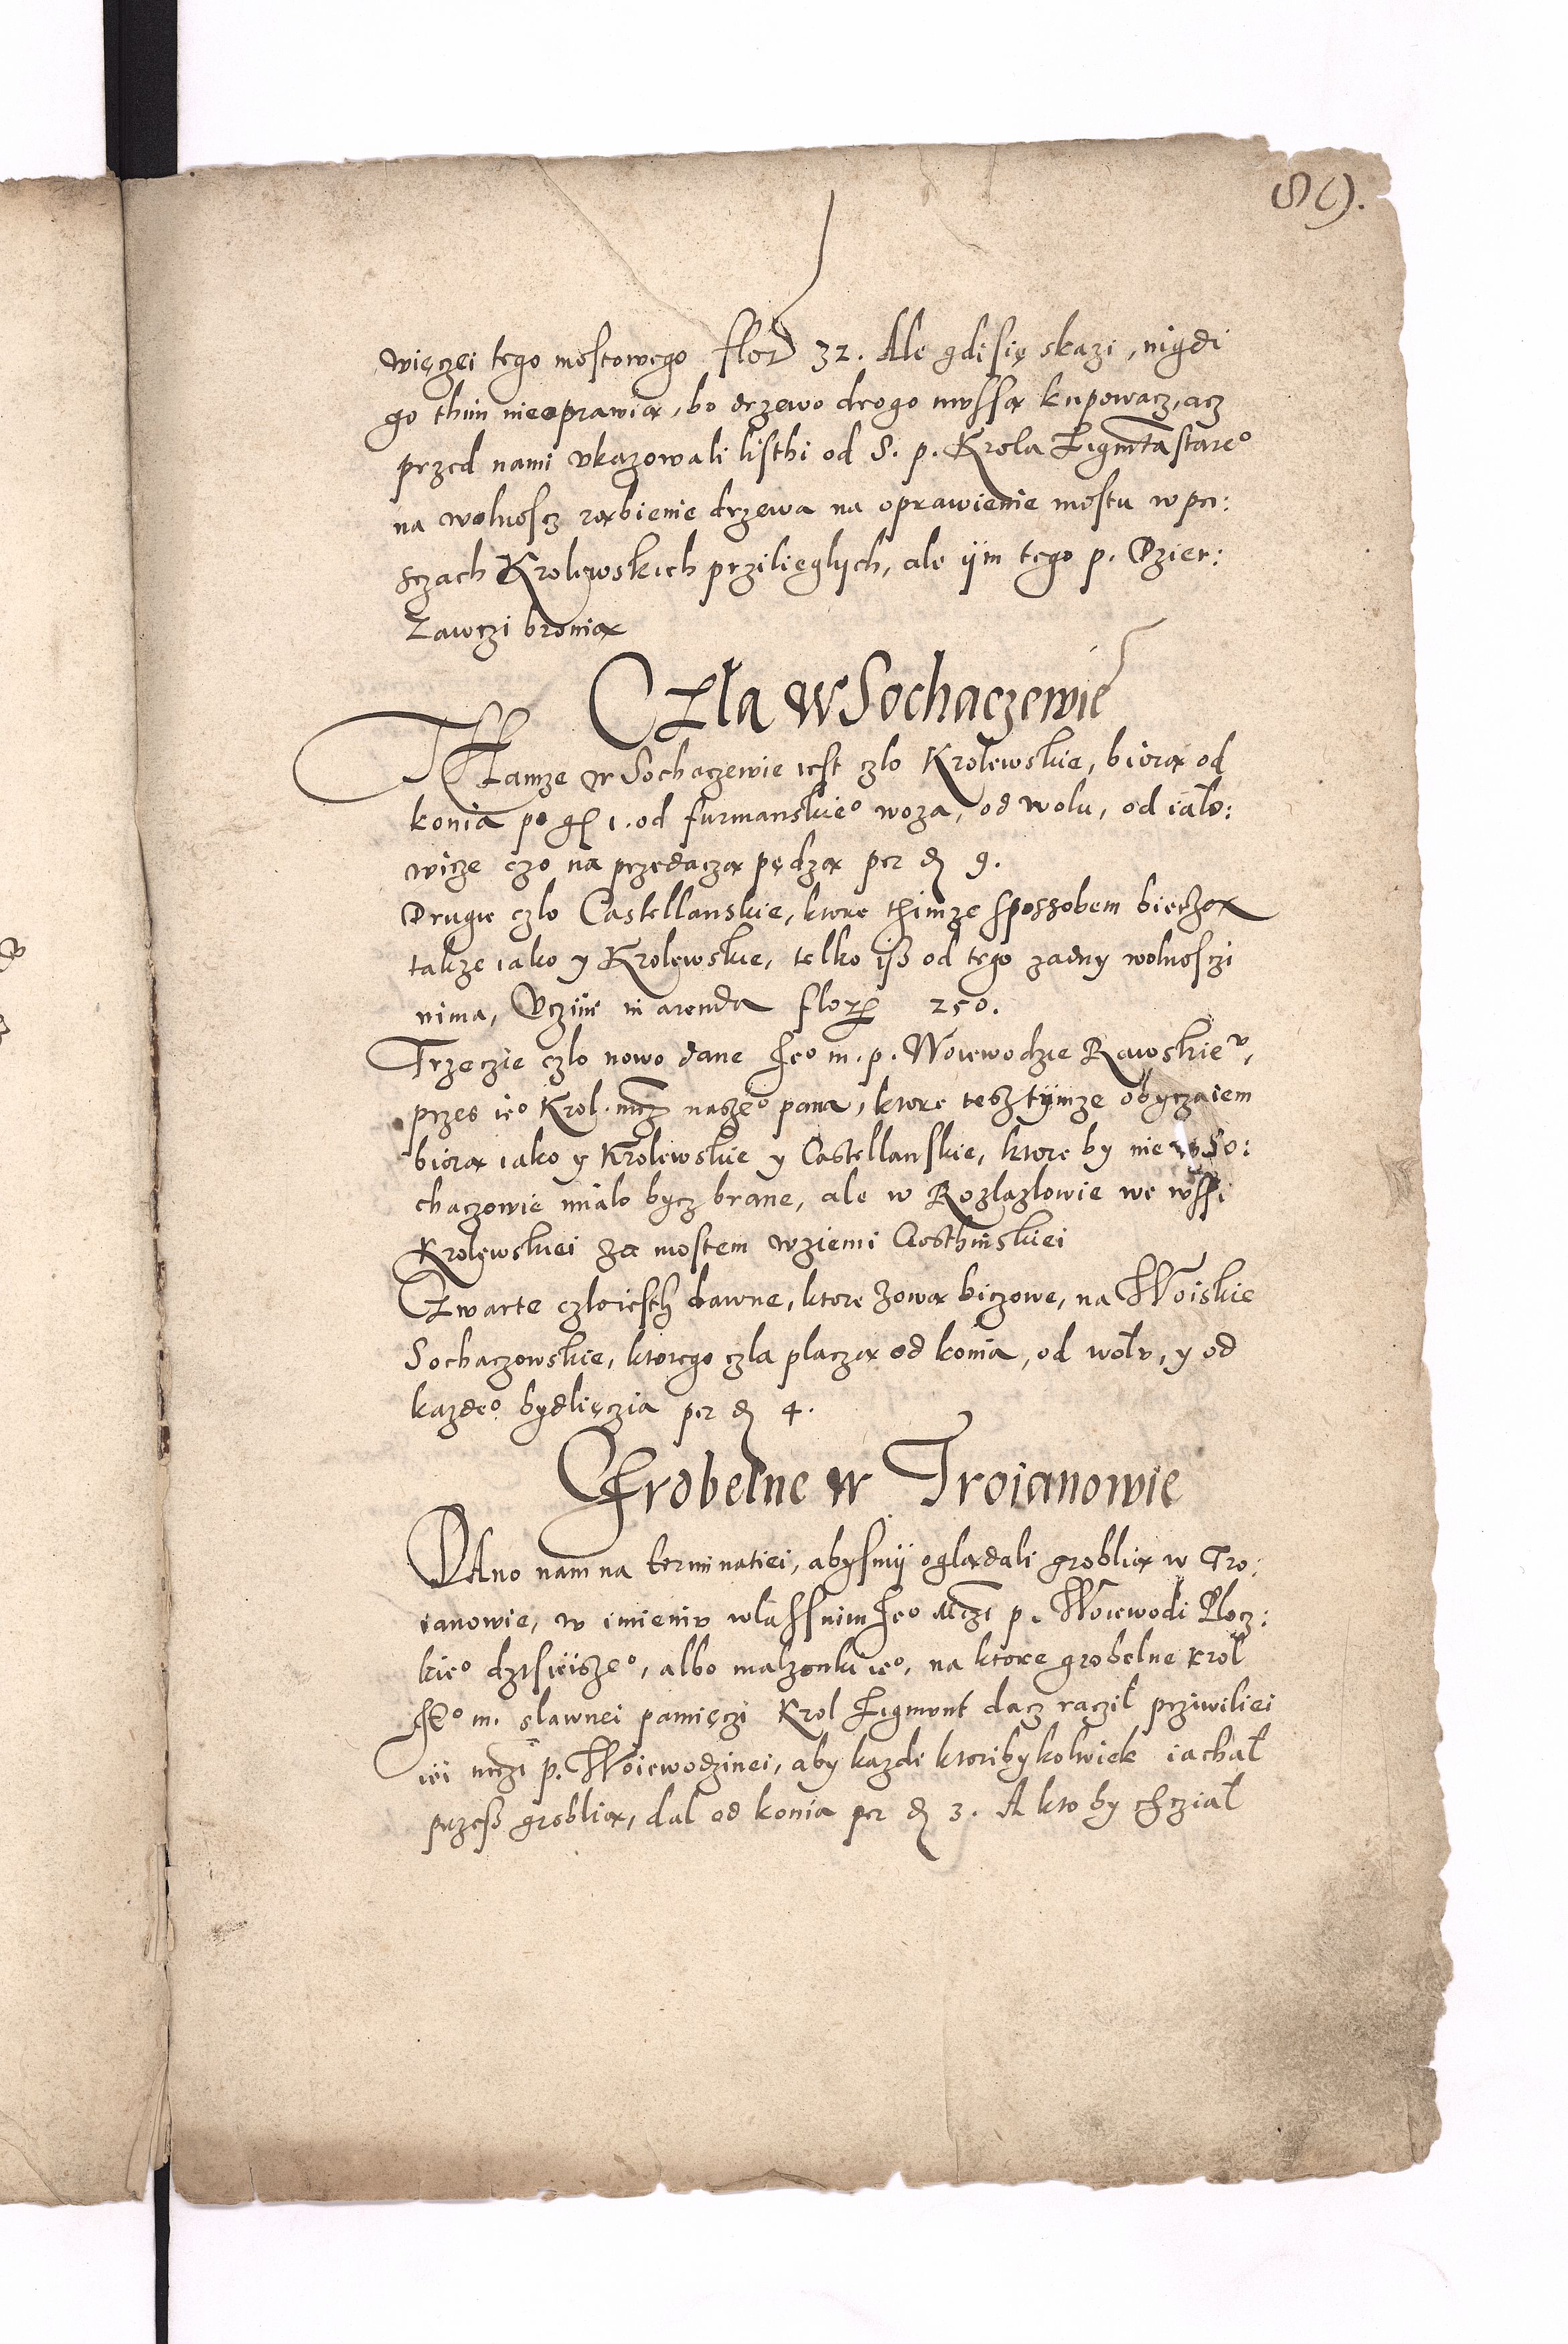 89.
więczei tego mostowego flor 32. Ale gdi się skazi, nigdi
go thim nieoprawią, bo drzewo drogo mussą kupowacz, acz
przed nami vkazowali listhi od S. p. Krola Zigmta stare°
na wolnoscz rąbienie drzewa na oprawienie mostu w pu:
sczach Krolewskich przilięglych, ale ijm tego p. Dzier:
zawczi bronią
Czla w Sochaczewie
Thamze w Sochaczewie iest czlo Krolewskie, biorą od
konia po gr 1. od furmanskie° woza, od wolu, od iało:
wicze czo na przedaczą pędzą per d 9.
Drugie czlo Castellanskie, ktore thimze sposzobem bierzą
takze iako y Krolewskie, telko iß od tego zadny wolnosczi
nima, Vczini in arenda flor 250.
Trzeczie czlo nowo dane Jeo m. p. Woiewodzie Rawskiev,
przes ie° Krol. mcz nasze° pana, ktore tesz tijmze obyczaiem
biorą iako y Krolewskie y Castellanskie, ktore by nie w So:
chaczowie mialo bycz brane, ale w Rozlazlowie we wssi
Krolewskiei za mostem w ziemi Gosthinskiei
Czwarte czlo iesth dawne, ktore zową biczowe, na Woiskie
Sochaczowskie, ktorego czla placzą od konia, od wołv, y od
kazde° bydlięczia per d 4.
Grobelne w Troianowie
Dano nam na terminatiei, abysmij oglądali groblią w Tro:
ianowie, w imieniv wlassnim Jeo Mczi p. Woiewodi Plocz:
kie° dzisieisze°, albo malzonki ie°, na ktore grobelne krol
Je° m. slawnei pamięczi Krol Zigmunt dacz racził przwiliei
iei mczi p. Woiewodzinei, aby kazdi ktoribykolwiek iachał
przeß groblią, dal od konia per d 3. A kto by chcział